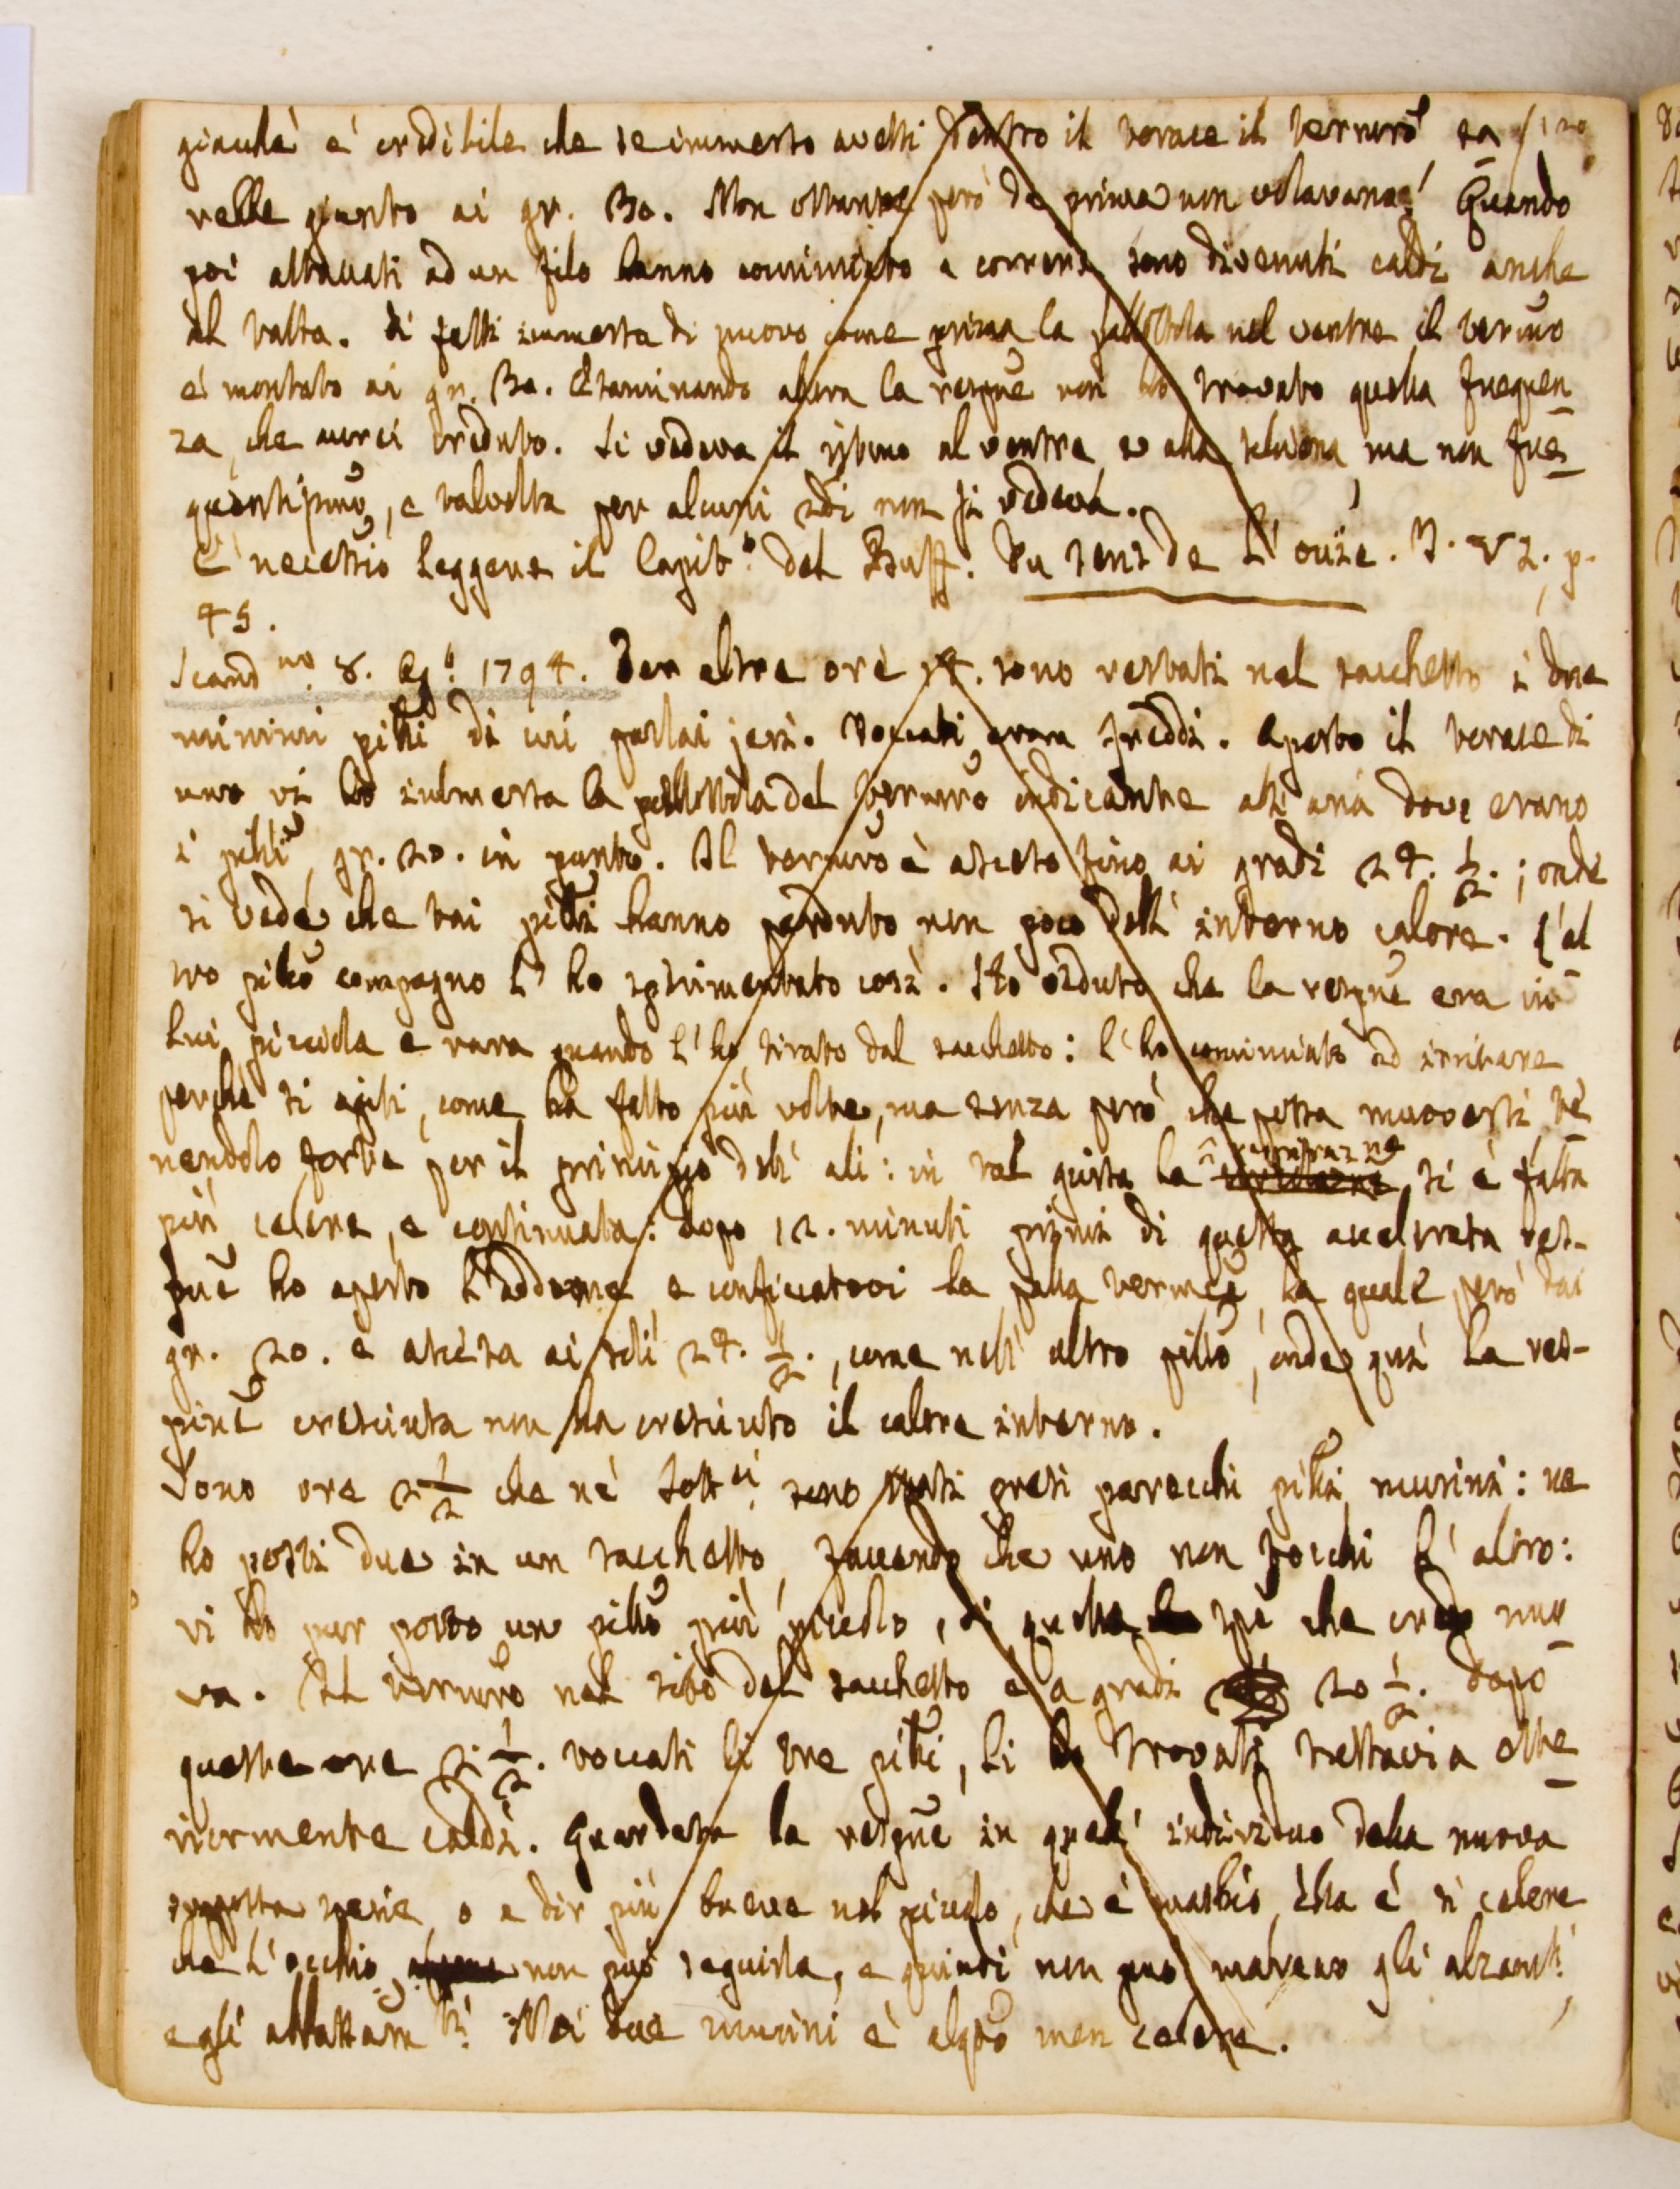 giacchè è credibile che se immerso avessi dentro il torace il termrō sa
rebbe giunto ai gr. 30. Non ostante però da prima non volavano. Quando
poi attaccati ad un filo hanno cominciato a correre sono divenuti caldi anche
al tatto. Di fatti immersa di nuovo come prima la pallottola nel ventre il termrō
è montato ai gr. 30. Esaminando allora la respnē non ho trovato quella frequen
za, che aurei creduto. Si vedeva il ritmo al ventre, e alla schiena, ma non fre
quentissmō, e talvolta per alcuni sdi non si vedeva.
E' necessrio leggere il Capito. del Buff. Du sens de l'ouïe. T. VI. p.
45.
Scandno. 8. Ago. 1794. Per altre ore 14. sono restati nel sacchetto i due
minimi pilli di cui parlai jeri. Toccati erano freddi. Aperto il torace di
uno vi ho immersa la pallottola del termrō indicante all' aria dove erano
i pilli gr. 20. in punto. Il termrō è asceso fino ai gradi 24. 1/2. ; onde
si vede che tai pilli hanno perduto non poco dell' interno calore. L'al
tro pillō compagno l' ho sperimentato così. Ho veduto che la respnē era in
lui piccola e rara quando l' ho tirato dal sacchetto : l' ho cominciato ad irritare
perchè si agiti, come ha fatto più volte, ma senza però che possa muoversi te
nendolo forte per il principio dell' ali : in tal guisa la respiraz ne si è fatta
più celere, e continuata : dopo 12. minuti primi di questa accelerata res-
pnē ho aperto l' addome e conficcatovi la palla termcā, la quale però dai
gr. 20. è ascesa ai soli 24. 1/2. , come nell' altro pillō, onde quì la res-
pinē cresciuta non ha cresciuto il calore interno.
Sono ore 2 1/2 che ne' sottei. sono stati presi parecchi pilli murini : ne
ho posti due in un sacchetto, facendo che uno non tocchi l' altro :
vi ho pur posto un pillō più piccolo, di quella spē che credo nuo
va. Il termrō nel sito del sacchetto è a gradi 20 1/2. Dopo
queste ore 2. 1/2. toccati li tre pilli, li ho trovati tuttavia este
riormente caldi. Guardata la respnē in quell' individuo della nuova
supposta specie, o a dir più breve nel piccolo, che è maschio, essa è sì celere
che l' occhio non può seguirla, e quindi non può notare gli alzamti.
e gli abbassamti. Nei due murini è alqtō men celere.